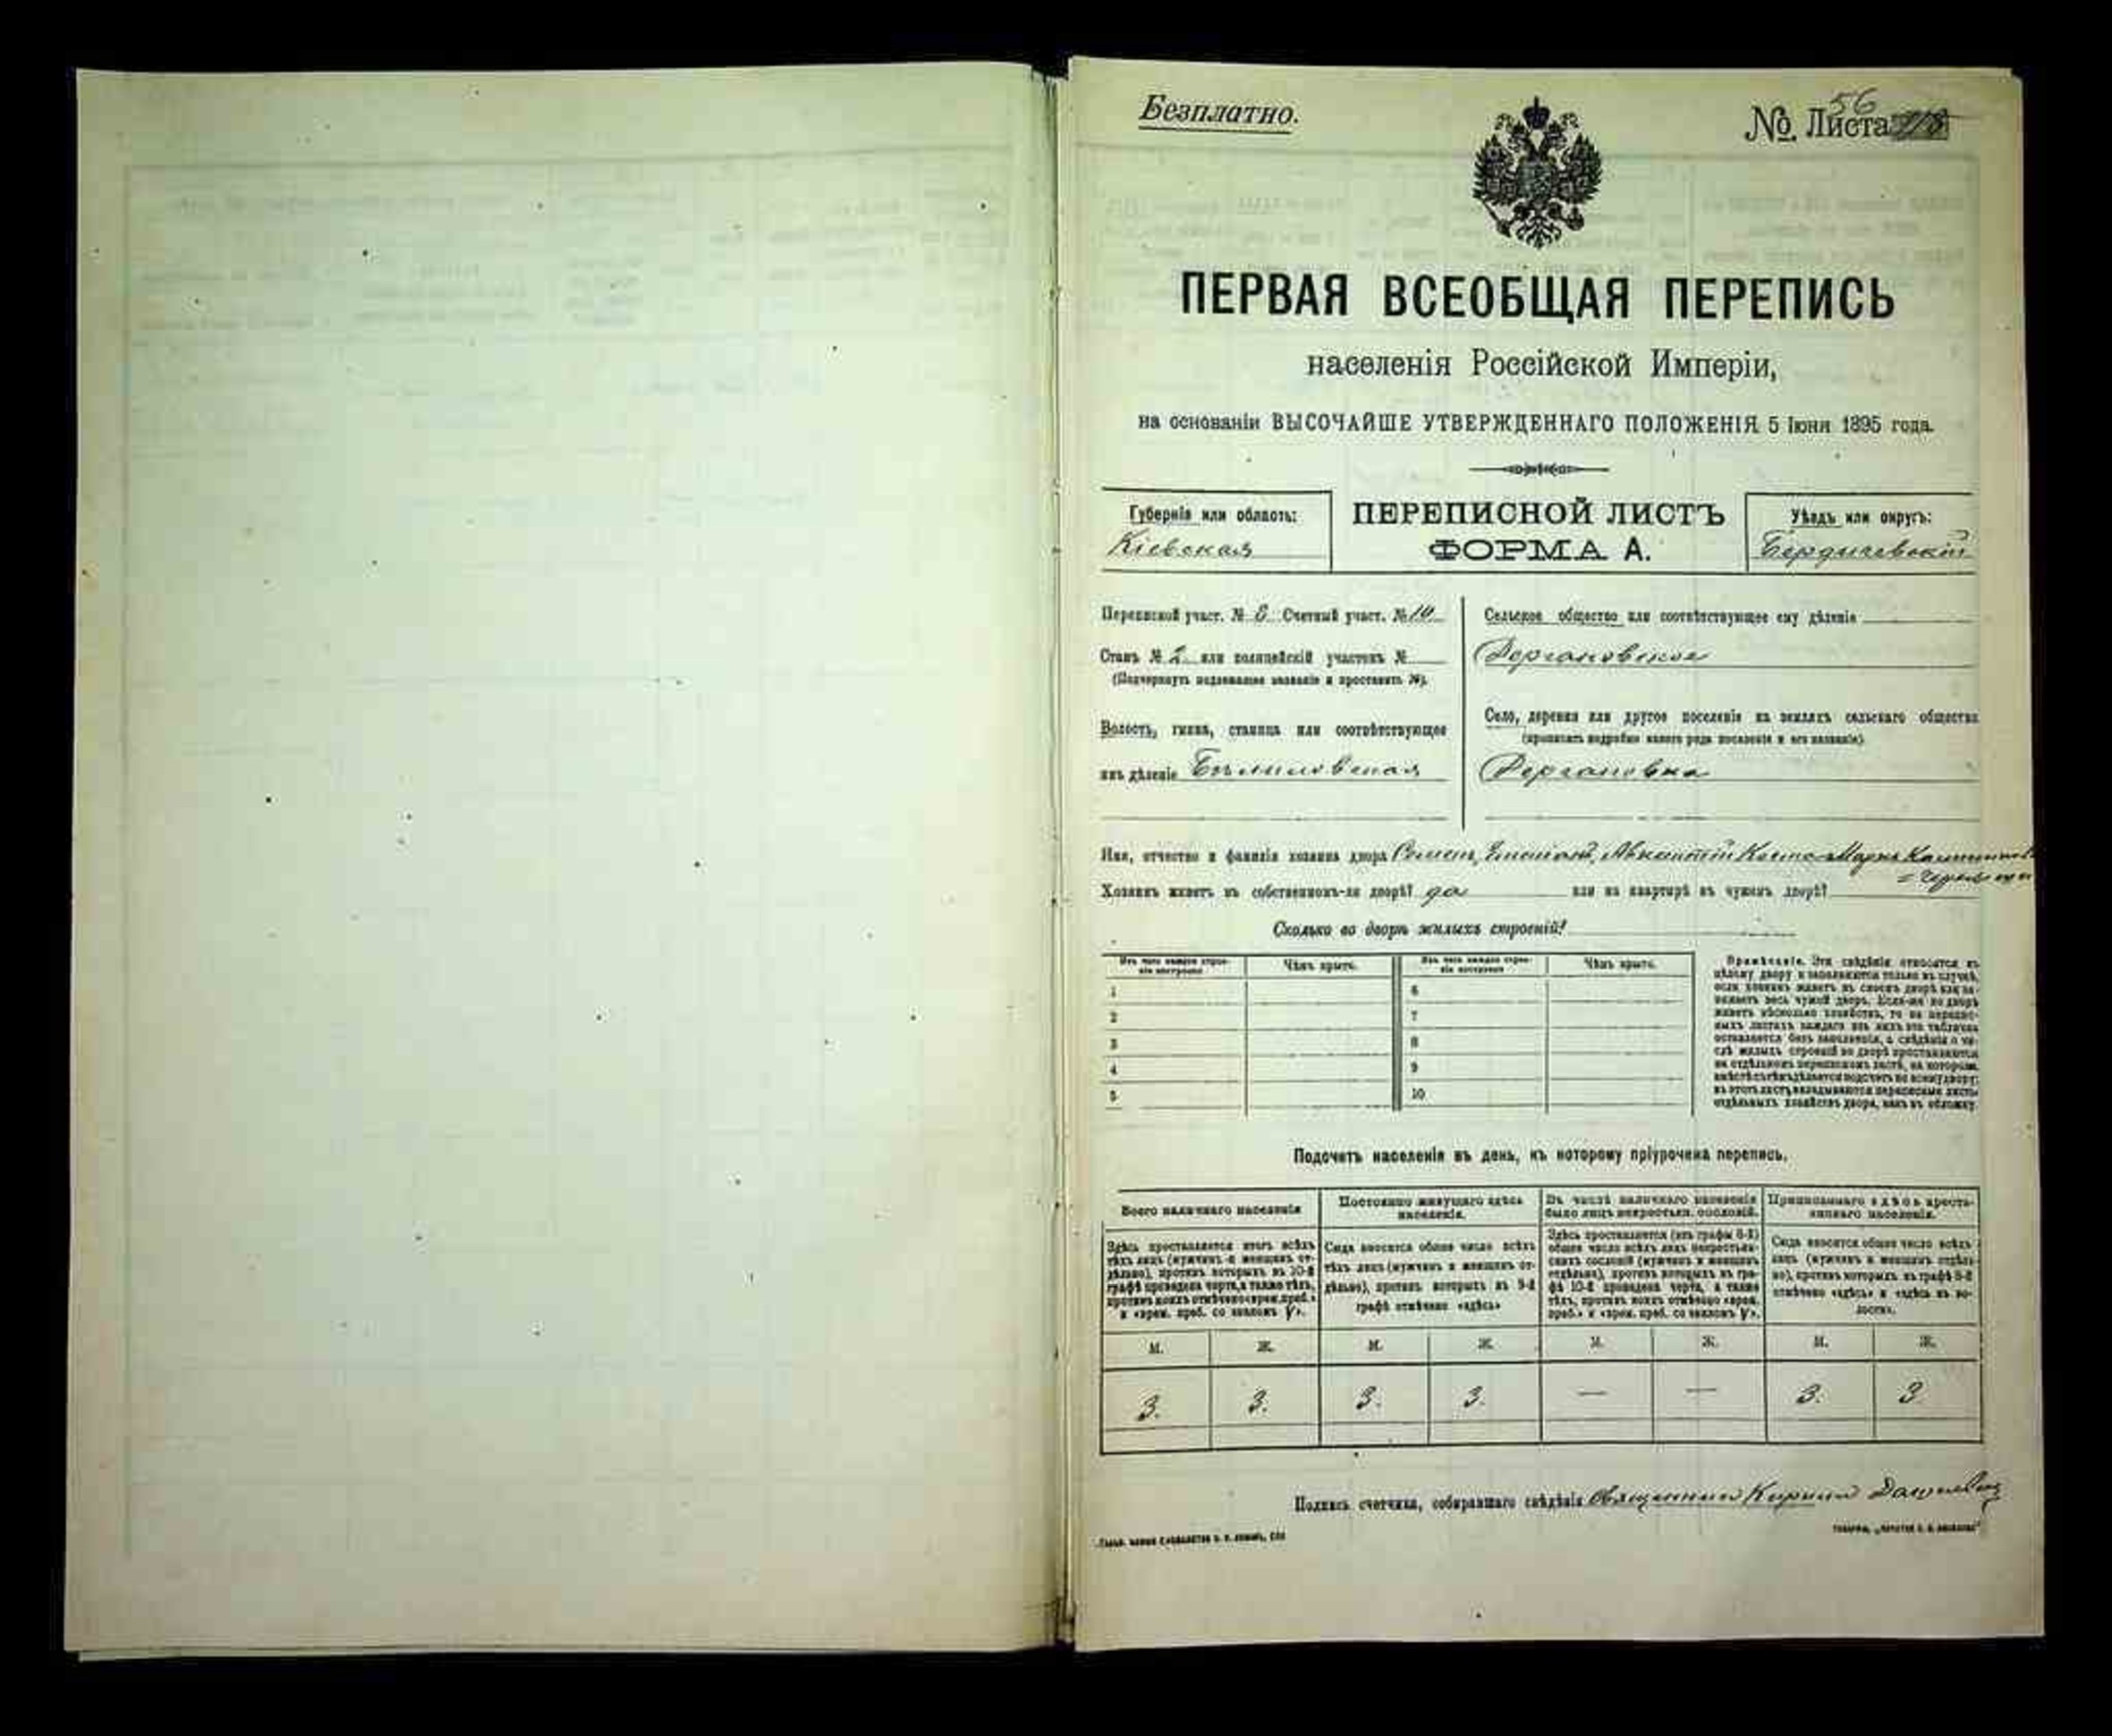 Безплатно.
56
№. Листа
ПЕРВАЯ ВСЕОБЩАЯ ПЕРЕПИСЬ
населенія Россійской Имперіи,
на основаніи ВЫСОЧАЙШЕ УТВЕРЖДЕННАГО ПОЛОЖЕНІЯ 5 Іюня 1895 года.
Губернія или область:
Кіевская
ПЕРЕПИСНОЙ ЛИСТЪ
ФОРМА А.
Уѣздъ или округъ:
Бердичевскій
Переписной участ. № 8 Счетный участ. №
Станъ № 2 или полицейскій участокъ №
(Подчеркнуть надлежащее названіе и проставить №).
Волость, гмина, станица или соотвѣтствующее
имъ дѣленіе Бѣлиловская
Сельское общество или соотвѣтствующее ему дѣленіе
Дергановское
Село, деревня или другое поселеніе на земляхъ сельскаго общества
(прописать подробно какого рода поселеніе и его названіе).
Дергановка
Имя, отчество и фамилія хозяина двора Семенъ, Марко
Хозяинъ живетъ въ собственномъ-ли дворѣ? да или на квартирѣ въ чужомъ дворѣ?
Сколько во дворѣ жилыхъ строеній?
Изъ чего каждое строе-
ніе построено
Чѣмъ крыто.
Изъ чего каждое строе-
ніе построено
Чѣмъ крыто.
1 6
2 7
3 8
4 9
5 10
Примѣчаніе. Эти свѣдѣнія относятся къ
цѣлому двору и заполняются только въ случаѣ,
если хозяинъ живетъ въ своемъ дворѣ или за-
нимаетъ весь чужой дворъ. Если-же во дворѣ
живетъ нѣсколько хозяйствъ, то на перепис-
ныхъ листахъ каждаго изъ нихъ эта табличка
оставляется безъ заполненія, а свѣдѣнія о чи-
слѣ жилыхъ строеній во дворѣ проставляются
на отдѣльномъ переписномъ листѣ, на которомъ
вмѣстѣ съ тѣмъ дѣлается подсчетъ по всему двору;
въ этотъ листъ вкладываются переписные листы
отдѣльныхъ хозяйствъ двора, какъ въ обложку.
Подсчетъ населенія въ день, къ которому пріурочена перепись.
Всего наличнаго населенія
Постоянно живущаго здѣсь
населенія.
Въ числѣ наличнаго населенія
было лицъ некрестьян. сословій.
Приписаннаго здѣсь кресть-
янскаго населенія.
Здѣсь проставляется итогъ всѣхъ
тѣхъ лицъ (мужчинъ и женщинъ от-
дѣльно), противъ которыхъ въ 10-й
графѣ проведена черта, а также тѣхъ,
противъ коихъ отмѣчено «врем. преб.»
и «врем. преб. со знакомъ V».
Сюда вносится общее число всѣхъ
тѣхъ лицъ (мужчинъ и женщинъ от-
дѣльно), противъ которыхъ въ 9-й
графѣ отмѣчено «здѣсь»
Здѣсь проставляется (изъ графы 6-й)
общее число всѣхъ лицъ некрестьян-
скихъ сословій (мужчинъ и женщинъ
отдѣльно), противъ которыхъ въ гра-
фѣ 10-й проведена черта, а также
тѣхъ, противъ коихъ отмѣчено «врем.
преб.» и «врем. преб. со знакомъ V».
Сюда вноситься общее число всѣхъ
лицъ (мужчинъ и женщинъ отдѣль-
но), противъ которыхъ въ графѣ 8-й
отмѣчено «здѣсь» и «здѣсь въ во-
лости».
М. Ж. М. Ж. М. Ж. М. Ж.
3. 3. 3. 3. — — 3. 3
Подпись счетчика, собиравшаго свѣдѣнія Священникъ Кириллъ